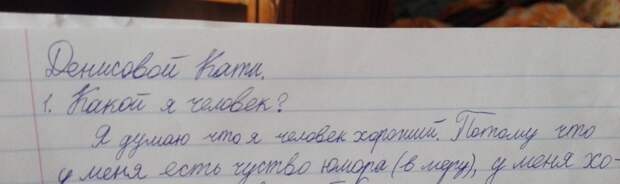 Денисовой Кати.
1. Какой я человек?
Я думаю что я человек хороший. Потому что
у меня есть чуство юмора (в меру), у меня хо-